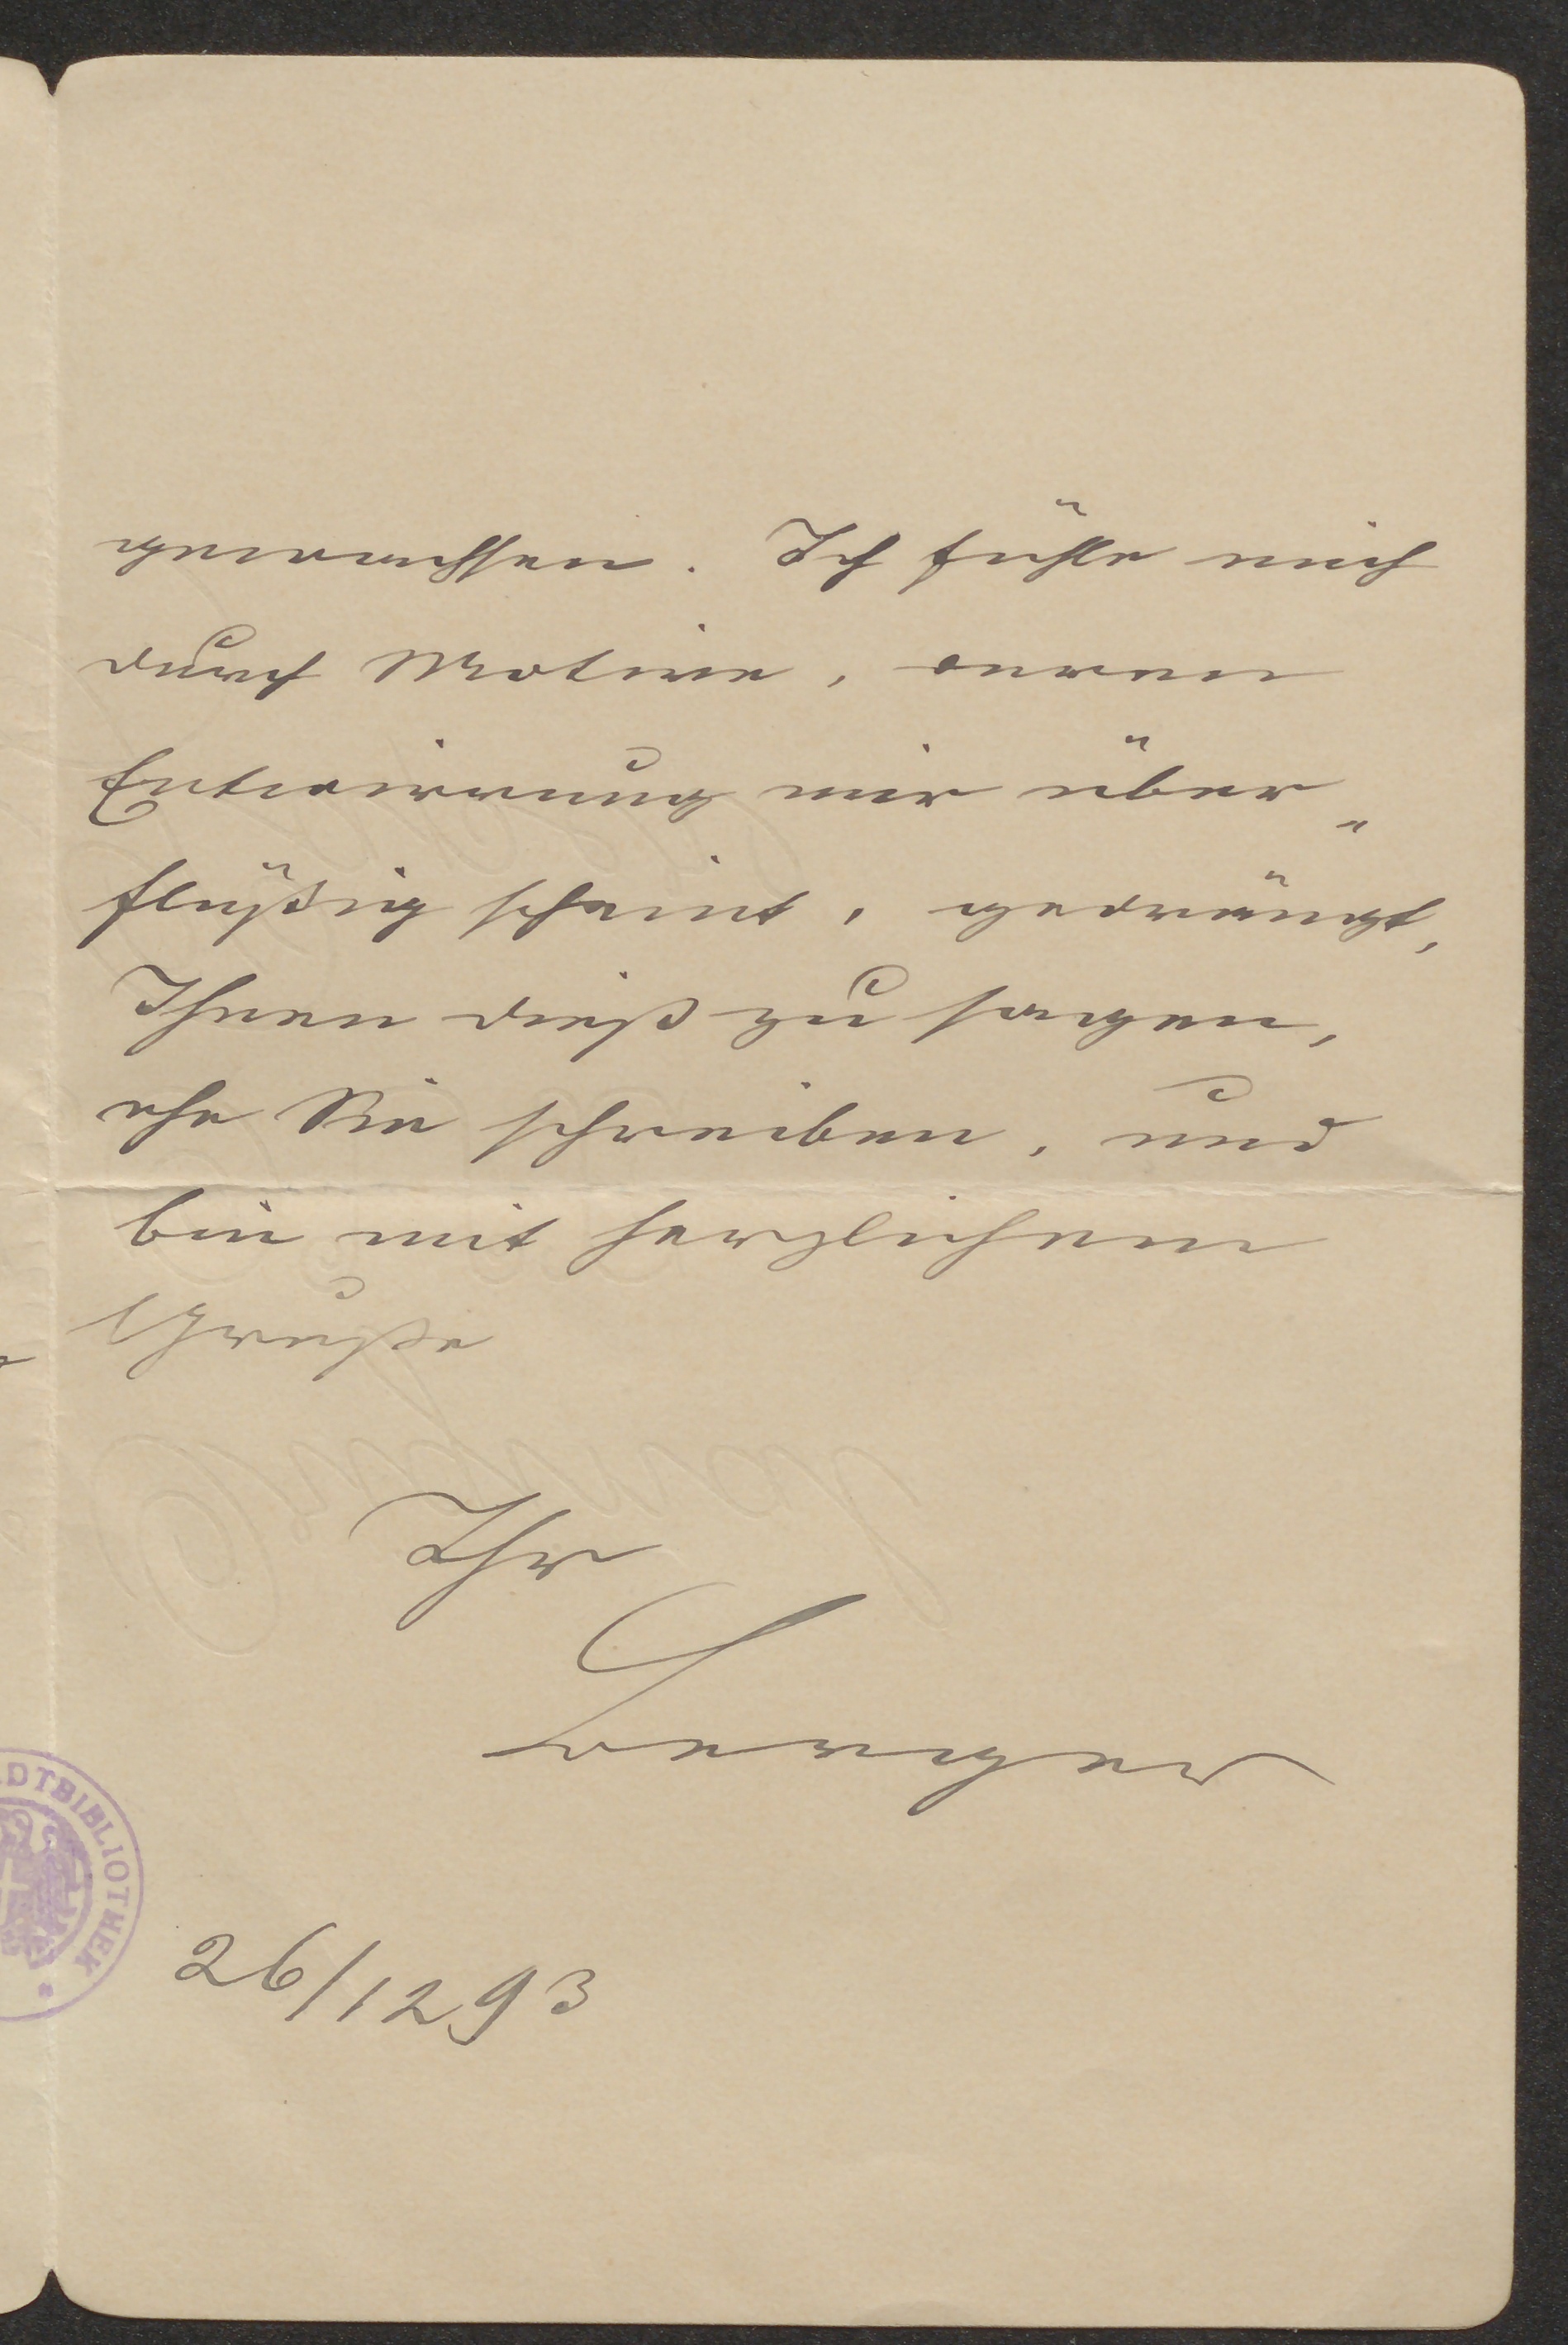 gewachsen. Ich fühle mich
durch Motive, deren
Entwirrung mir über„
flüßig scheint, gedrängt,
Ihnen dieß zu sagen,
ehe Sie schreiben, und
bin mit herzlichem
Gruße
Ihr
Berger
26/12 93
DTBIBLIOTHEK *